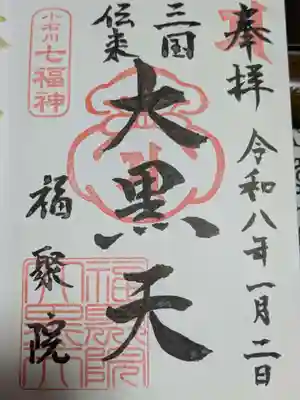 奉拝
令和八年一月二日
三国
伝来
大黒天
小石川
七福神
福聚院